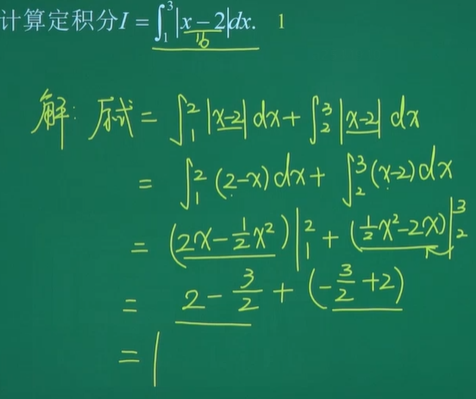 计算定积分I = ∫₁³ |x − 2|dx. 1
16
解: 原式 = ∫₁² |x-2| dx + ∫₂³ |x-2| dx
= ∫₁² (2-x) dx + ∫₂³ (x-2) dx
= (2x - ½x²)|₁² + (½x² - 2x)|₂³
= 2 - 3/2 + (-3/2 + 2)
= 1